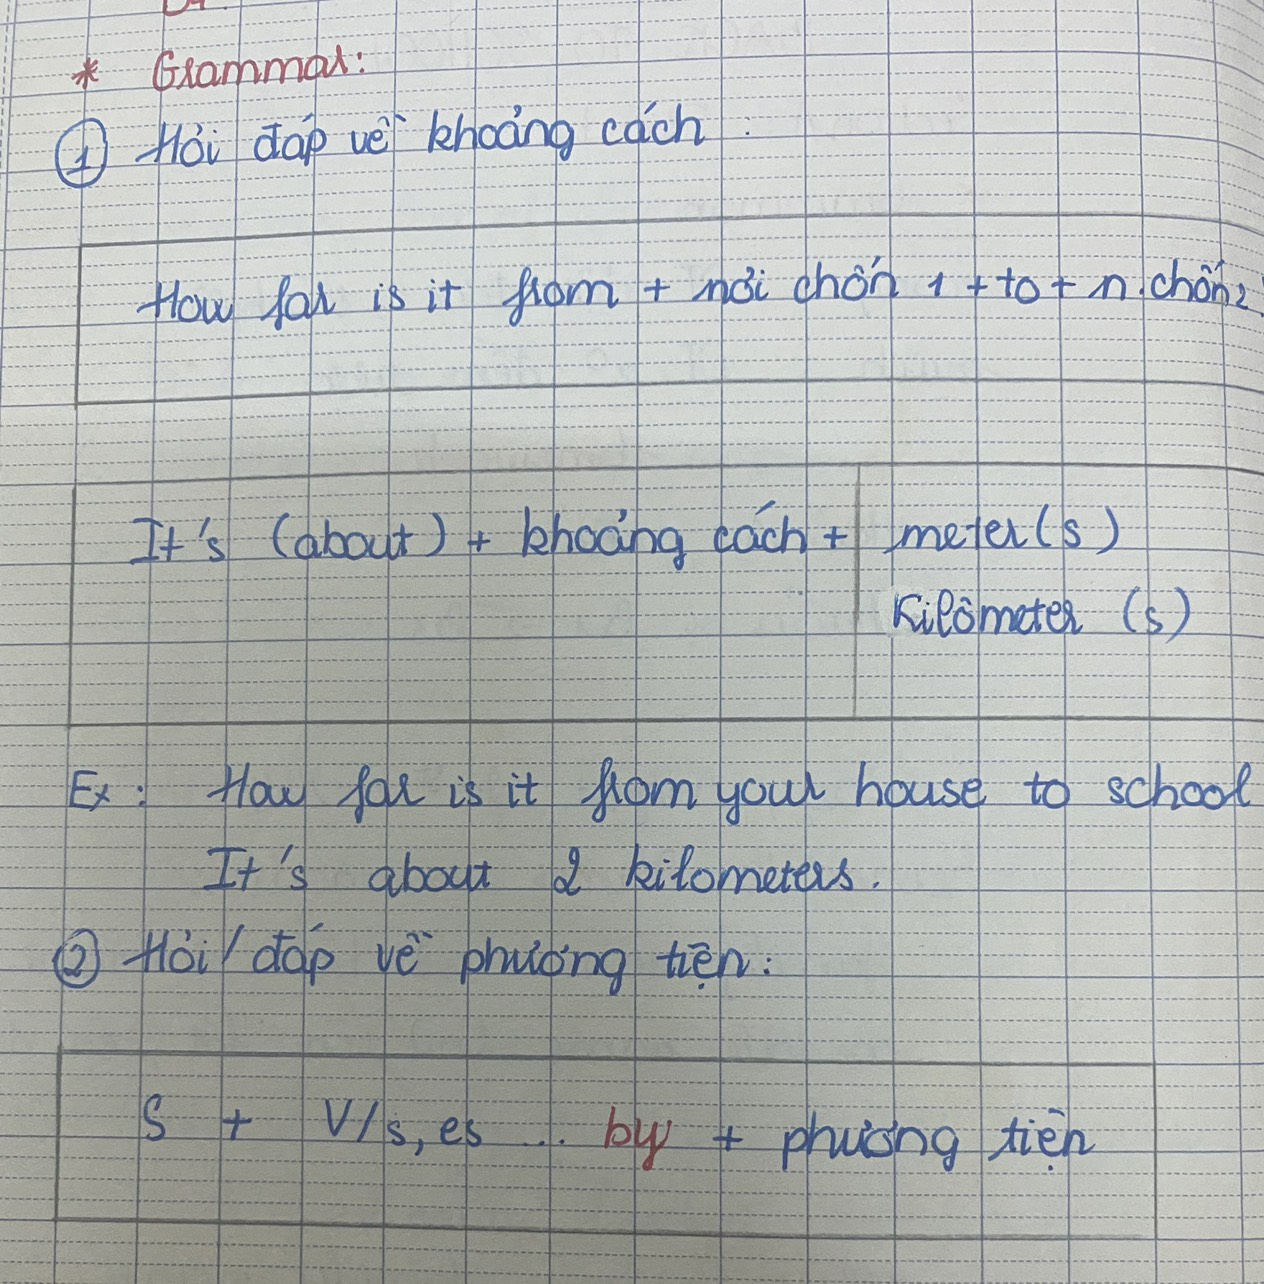 * Grammar:
① Hỏi đáp về khoảng cách :
How far is it from + nơi chốn 1 + to + n.chốn 2
It's (about) + khoảng cách + meter(s)
Kilômeter (s)
Ex : How far is it from your house to school
It's about 2 kilometers.
② Hỏi / đáp về phương tiện :
S + V/s, es ... by + phương tiện